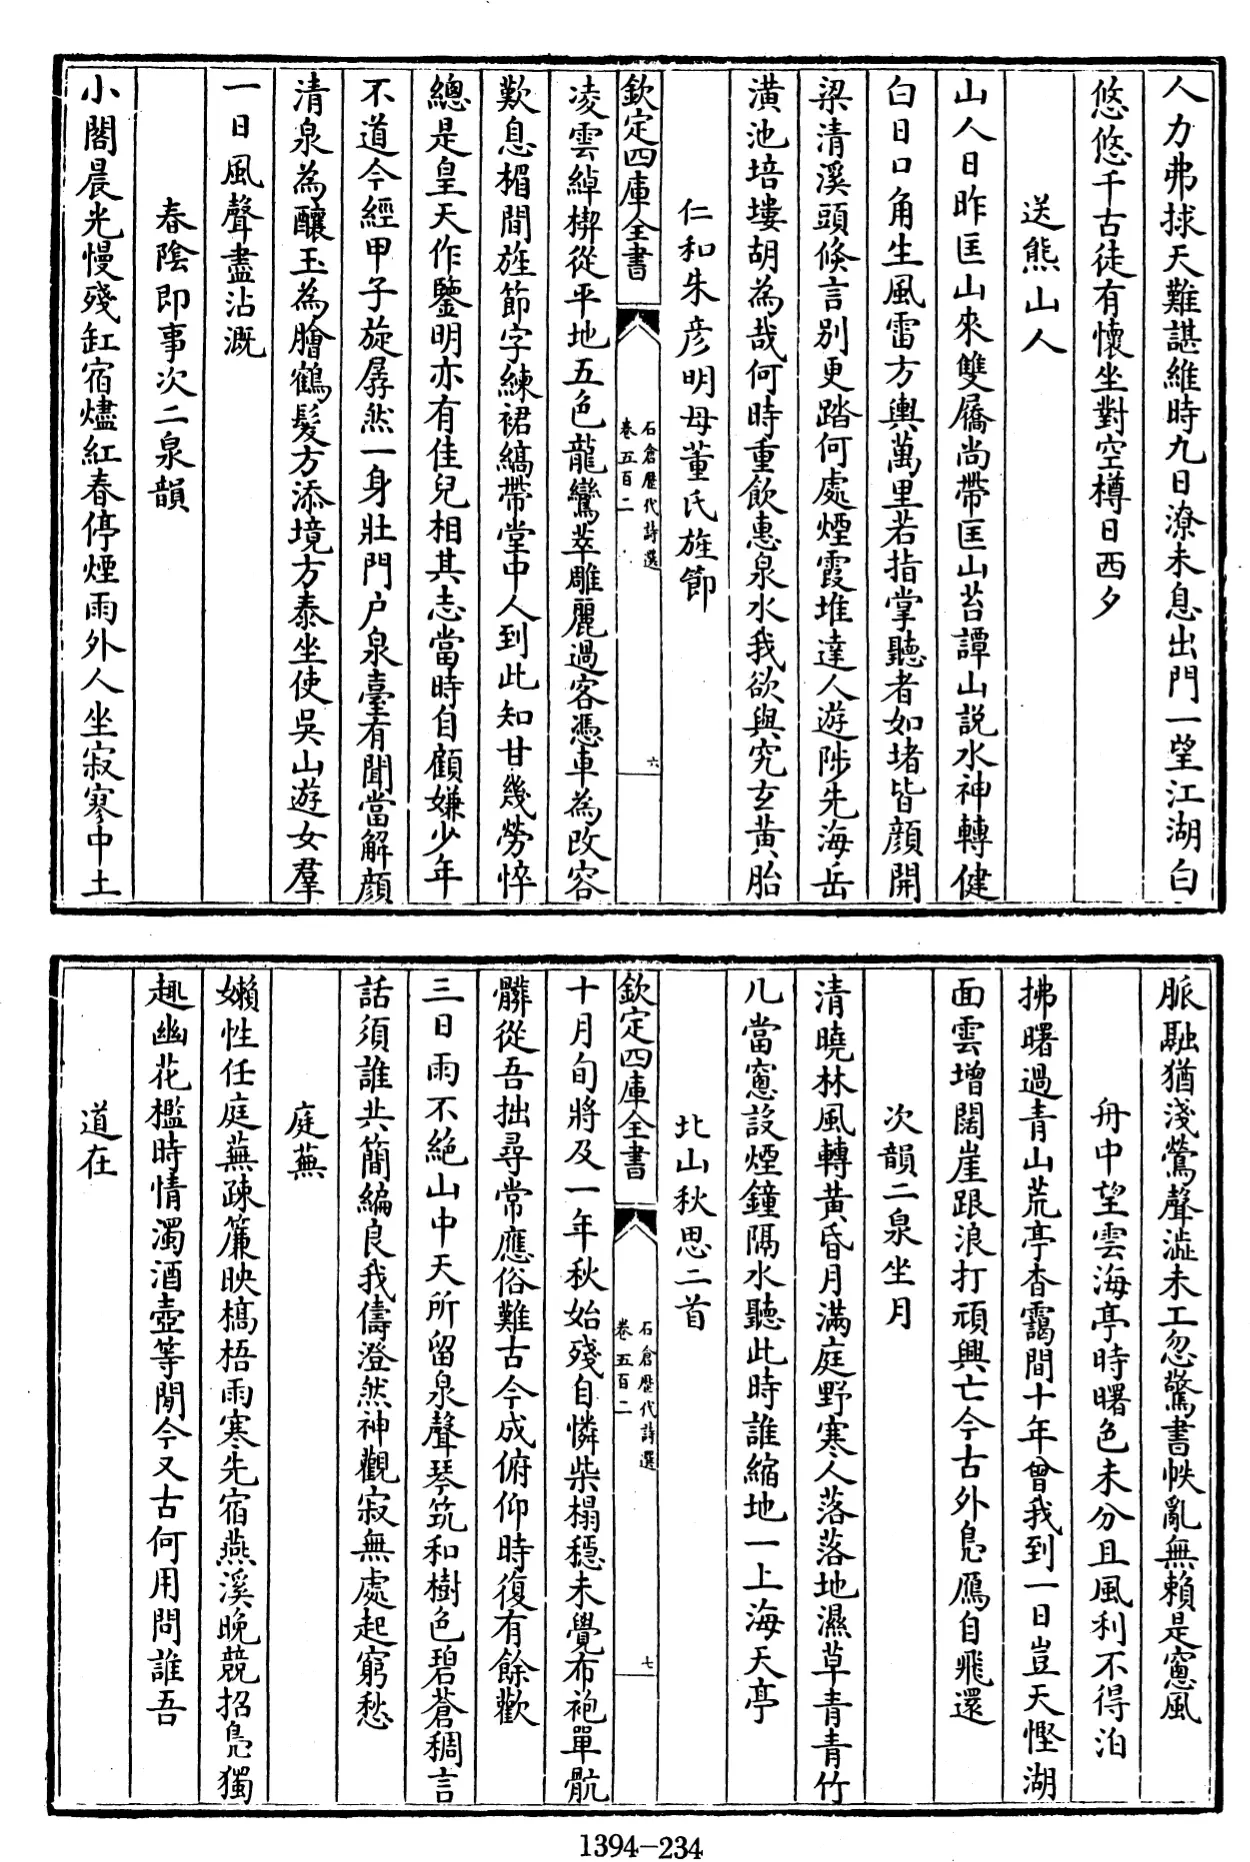 人力弗捄天難諶維時九日潦未息出門一望江湖白
悠悠千古徒有懷坐對空樽日西夕
送熊山人
山人日昨匡山來雙屩尚帶匡山苔譚山説水神轉健
白日口角生風雷方輿萬里若指掌聽者如堵皆顔開
梁清溪頭倐言别更踏何處煙霞堆達人遊陟先海岳
潢池培塿胡為哉何時重飲惠泉水我欲與究玄黄胎
仁和朱彦明母董氏旌節
欽定四庫全書
石倉歷代詩選
卷五百二
六
凌雲綽楔從平地五色龍鸞萃雕麗過客憑車為改容
歎息楣間旌節字練裙縞帶堂中人到此知甘幾勞悴
總是皇天作鑒明亦有佳兒相其志當時自顧嫌少年
不道今經甲子旋孱然一身壯門户泉臺有聞當解顔
清泉為釀玉為膾鶴髪方添境方泰坐使吳山遊女羣
一日風聲盡沾溉
春陰即事次二泉韻
小閣晨光慢殘缸宿燼紅春停煙雨外人坐寂寥中土
脈融猶淺鶯聲澁未工忽驚書帙亂無賴是窻風
舟中望雲海亭時曙色未分且風利不得泊
拂曙過青山荒亭杳靄間十年曾我到一日豈天慳湖
面雲增闊崖跟浪打頑興亡今古外鳬鴈自飛還
次韻二泉坐月
清曉林風轉黄昏月滿庭野寒人落落地濕草青青竹
几當窻設煙鐘隔水聽此時誰縮地一上海天亭
北山秋思二首
欽定四庫全書
石倉歷代詩選
卷五百二
七
十月旬將及一年秋始殘自憐柴榻穏未覺布袍單骯
髒從吾拙尋常應俗難古今成俯仰時復有餘歡
三日雨不絶山中天所留泉聲琴筑和樹色碧蒼稠言
話須誰共簡編良我儔澄然神觀寂無處起窮愁
庭蕪
嬾性任庭蕪疎簾映槁梧雨寒先宿燕溪晩競招鳬獨
趣幽花檻時情濁酒壺等閒今又古何用問誰吾
道在
1394-234